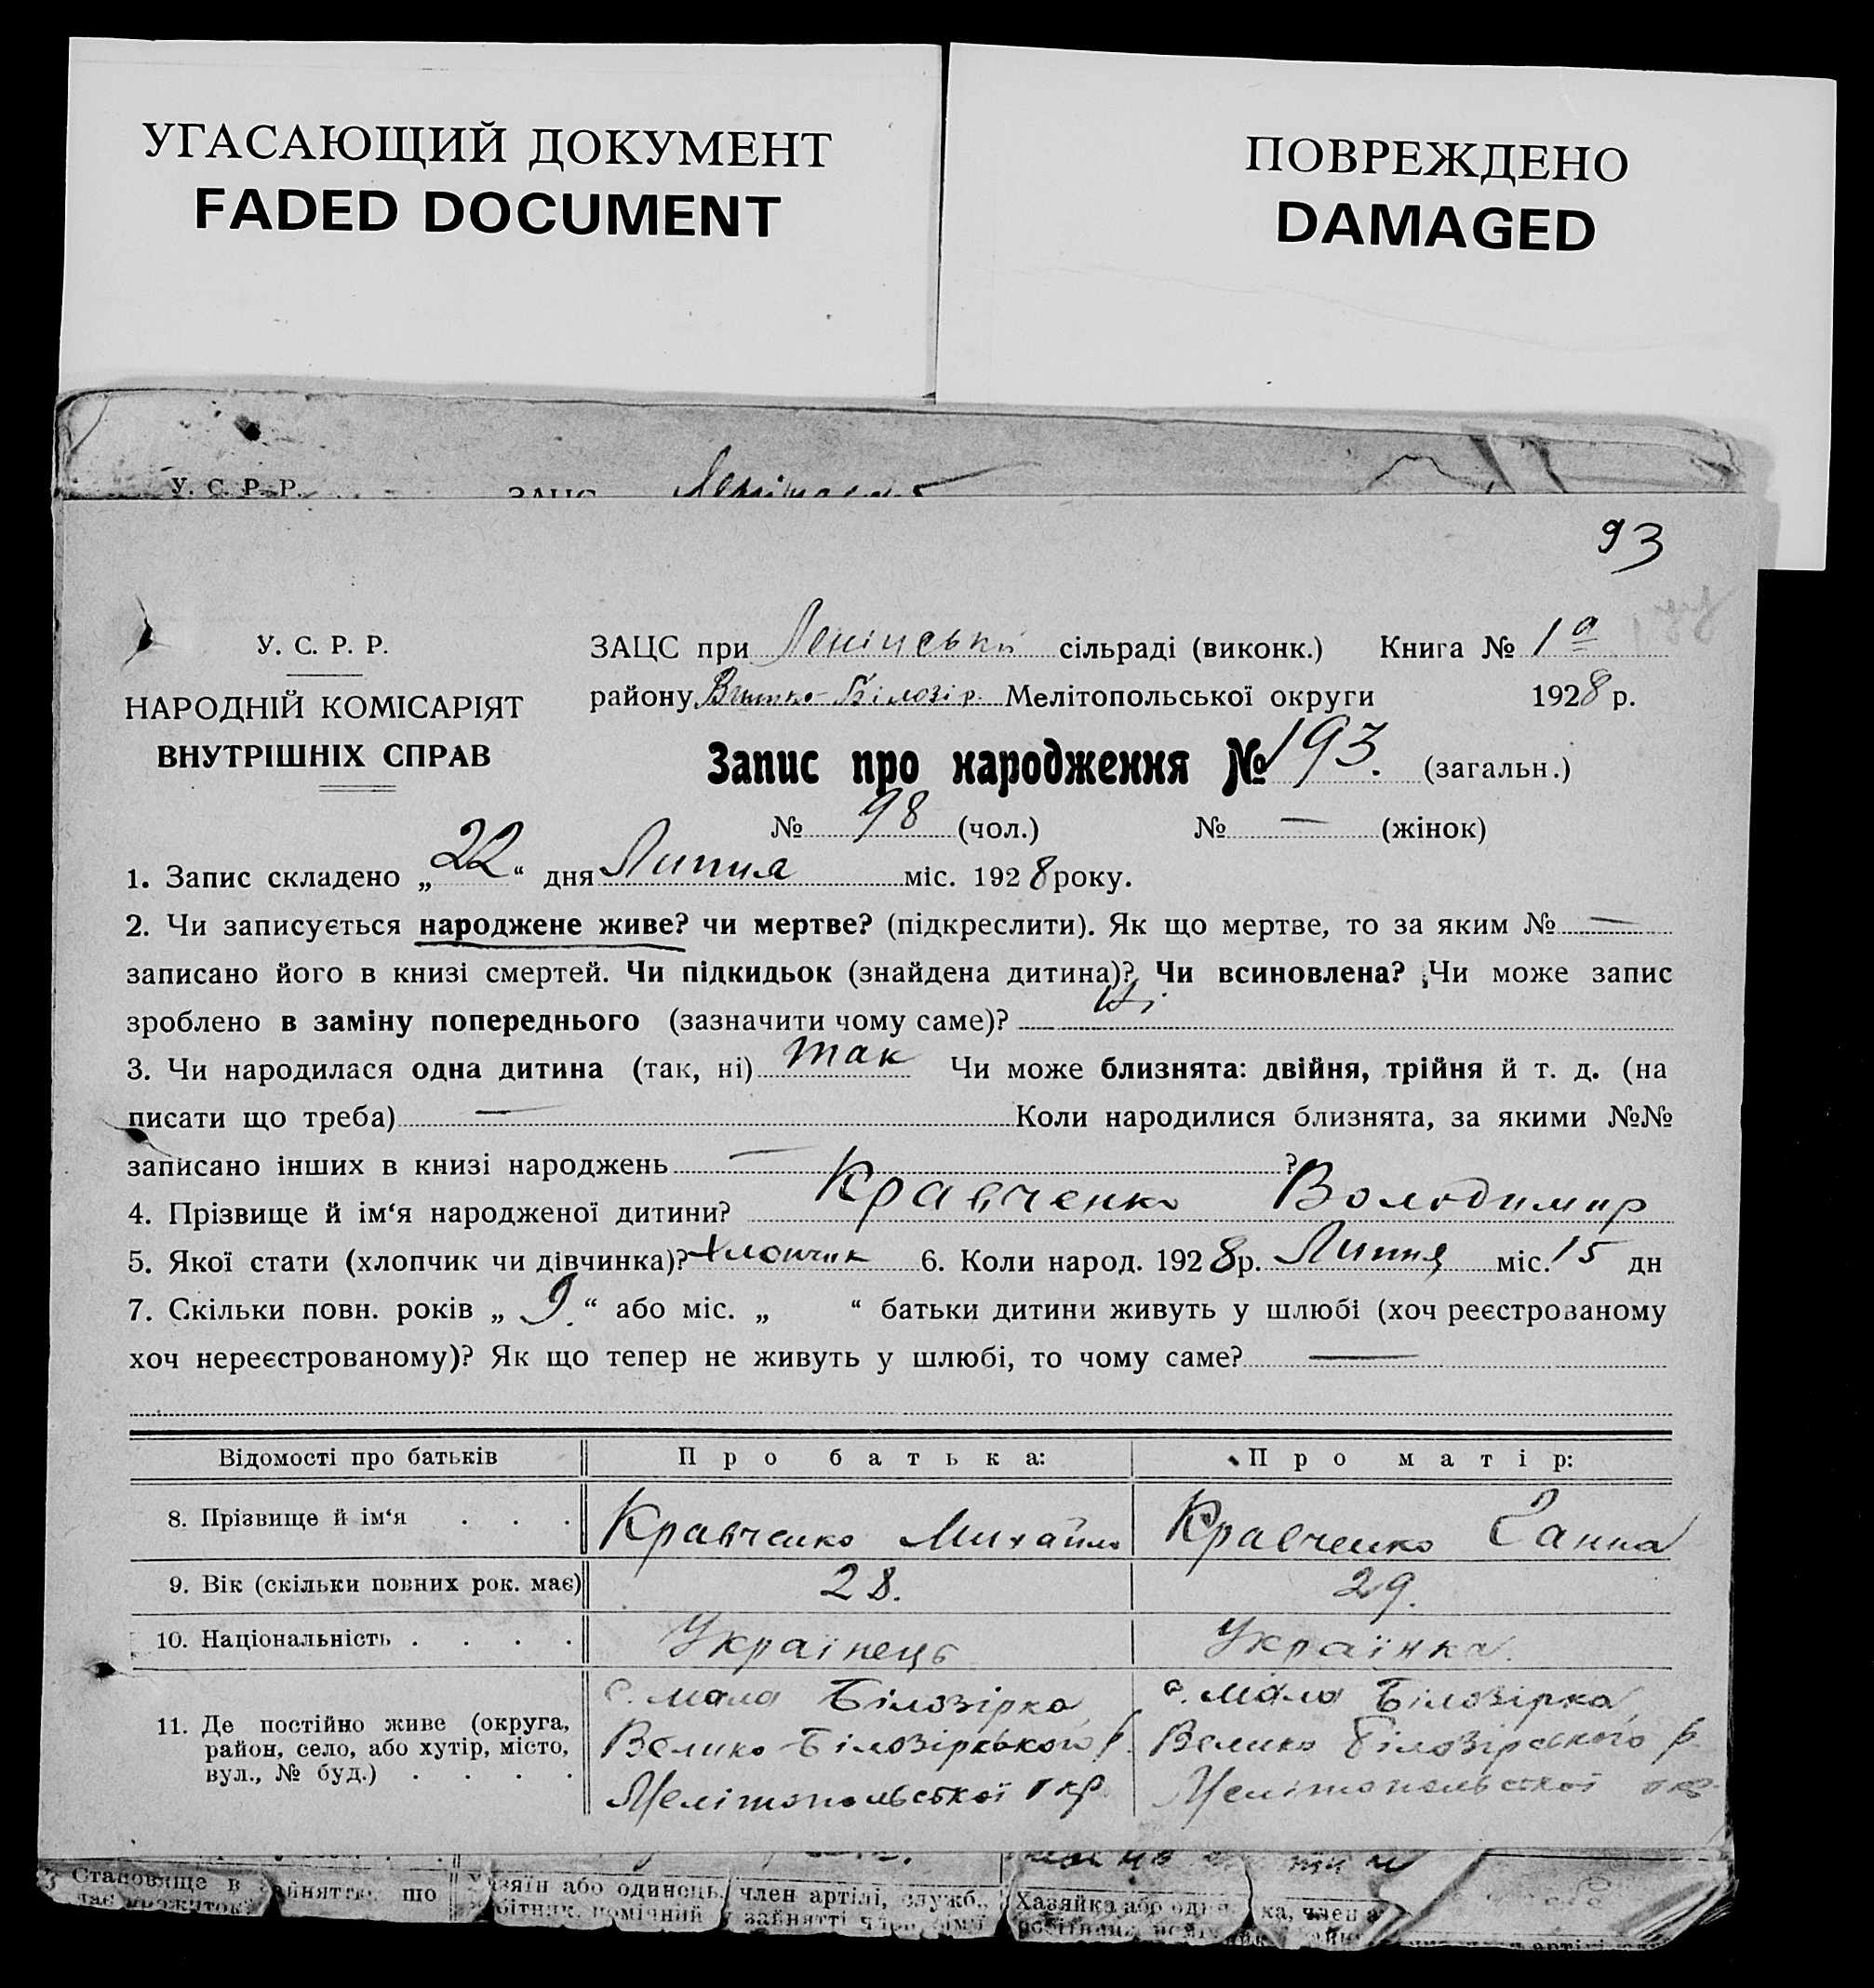 УГАСАЮЩИЙ ДОКУМЕНТ
FADED DOCUMENT
ПОВРЕЖДЕНО
DAMAGED
У. С. Р. Р. ЗАЦС
93
У. С. Р. Р.
НАРОДНІЙ КОМІСАРІЯТ
ВНУТРІШНІХ СПРАВ
ЗАЦС при Ленінській сільраді (виконк.) Книга № 1а
району Велико-Білозір. Мелітопольської округи 1928 р.
Запис про народження № 193. (загальн.)
№ 98 (чол.) № — (жінок)
1. Запис складено „22“ дня Липня міс. 1928 року.
2. Чи записується народжене живе? чи мертве? (підкреслити). Як що мертве, то за яким № —
записано його в книзі смертей. Чи підкидьок (знайдена дитина)? Чи всиновлена? Чи може запис
зроблено в заміну попереднього (зазначити чому саме)? Ні
3. Чи народилася одна дитина (так, ні) так Чи може близнята: двійня, трійня й т. д. (на
писати що треба) — Коли народилися близнята, за якими №№
записано інших в книзі народжень — ?
4. Прізвище й ім‘я народженої дитини? Кравченко Володимир
5. Якої стати (хлопчик чи дівчинка)? хлопчик 6. Коли народ. 1928 р. Липня міс. 15 дн
7. Скільки повн. років „ 9. “ або міс. „ “ батьки дитини живуть у шлюбі (хоч реєстрованому
хоч нереєстрованому)? Як що тепер не живуть у шлюбі, то чому саме? —
Відомості про батьків Про батька: Про матір:
8. Прізвище й ім‘я . . . Кравченко Михайло Кравченко Ганна
9. Вік (скільки повних рок. має) 28. 29.
10. Національність . . . . Українець Українка.
11. Де постійно живе (округа,
район, село, або хутір, місто,
вул., № буд.) . . . .
с. Мала Білозірка,
Велико Білозірського р.
Мелітопольської окр.
с. Мала Білозірка,
Велико Білозірського р.
Мелітопольської окр.
Становище в що
або одинець, член артілі, служб.,
помічний у зайнятті
Хазяйка або